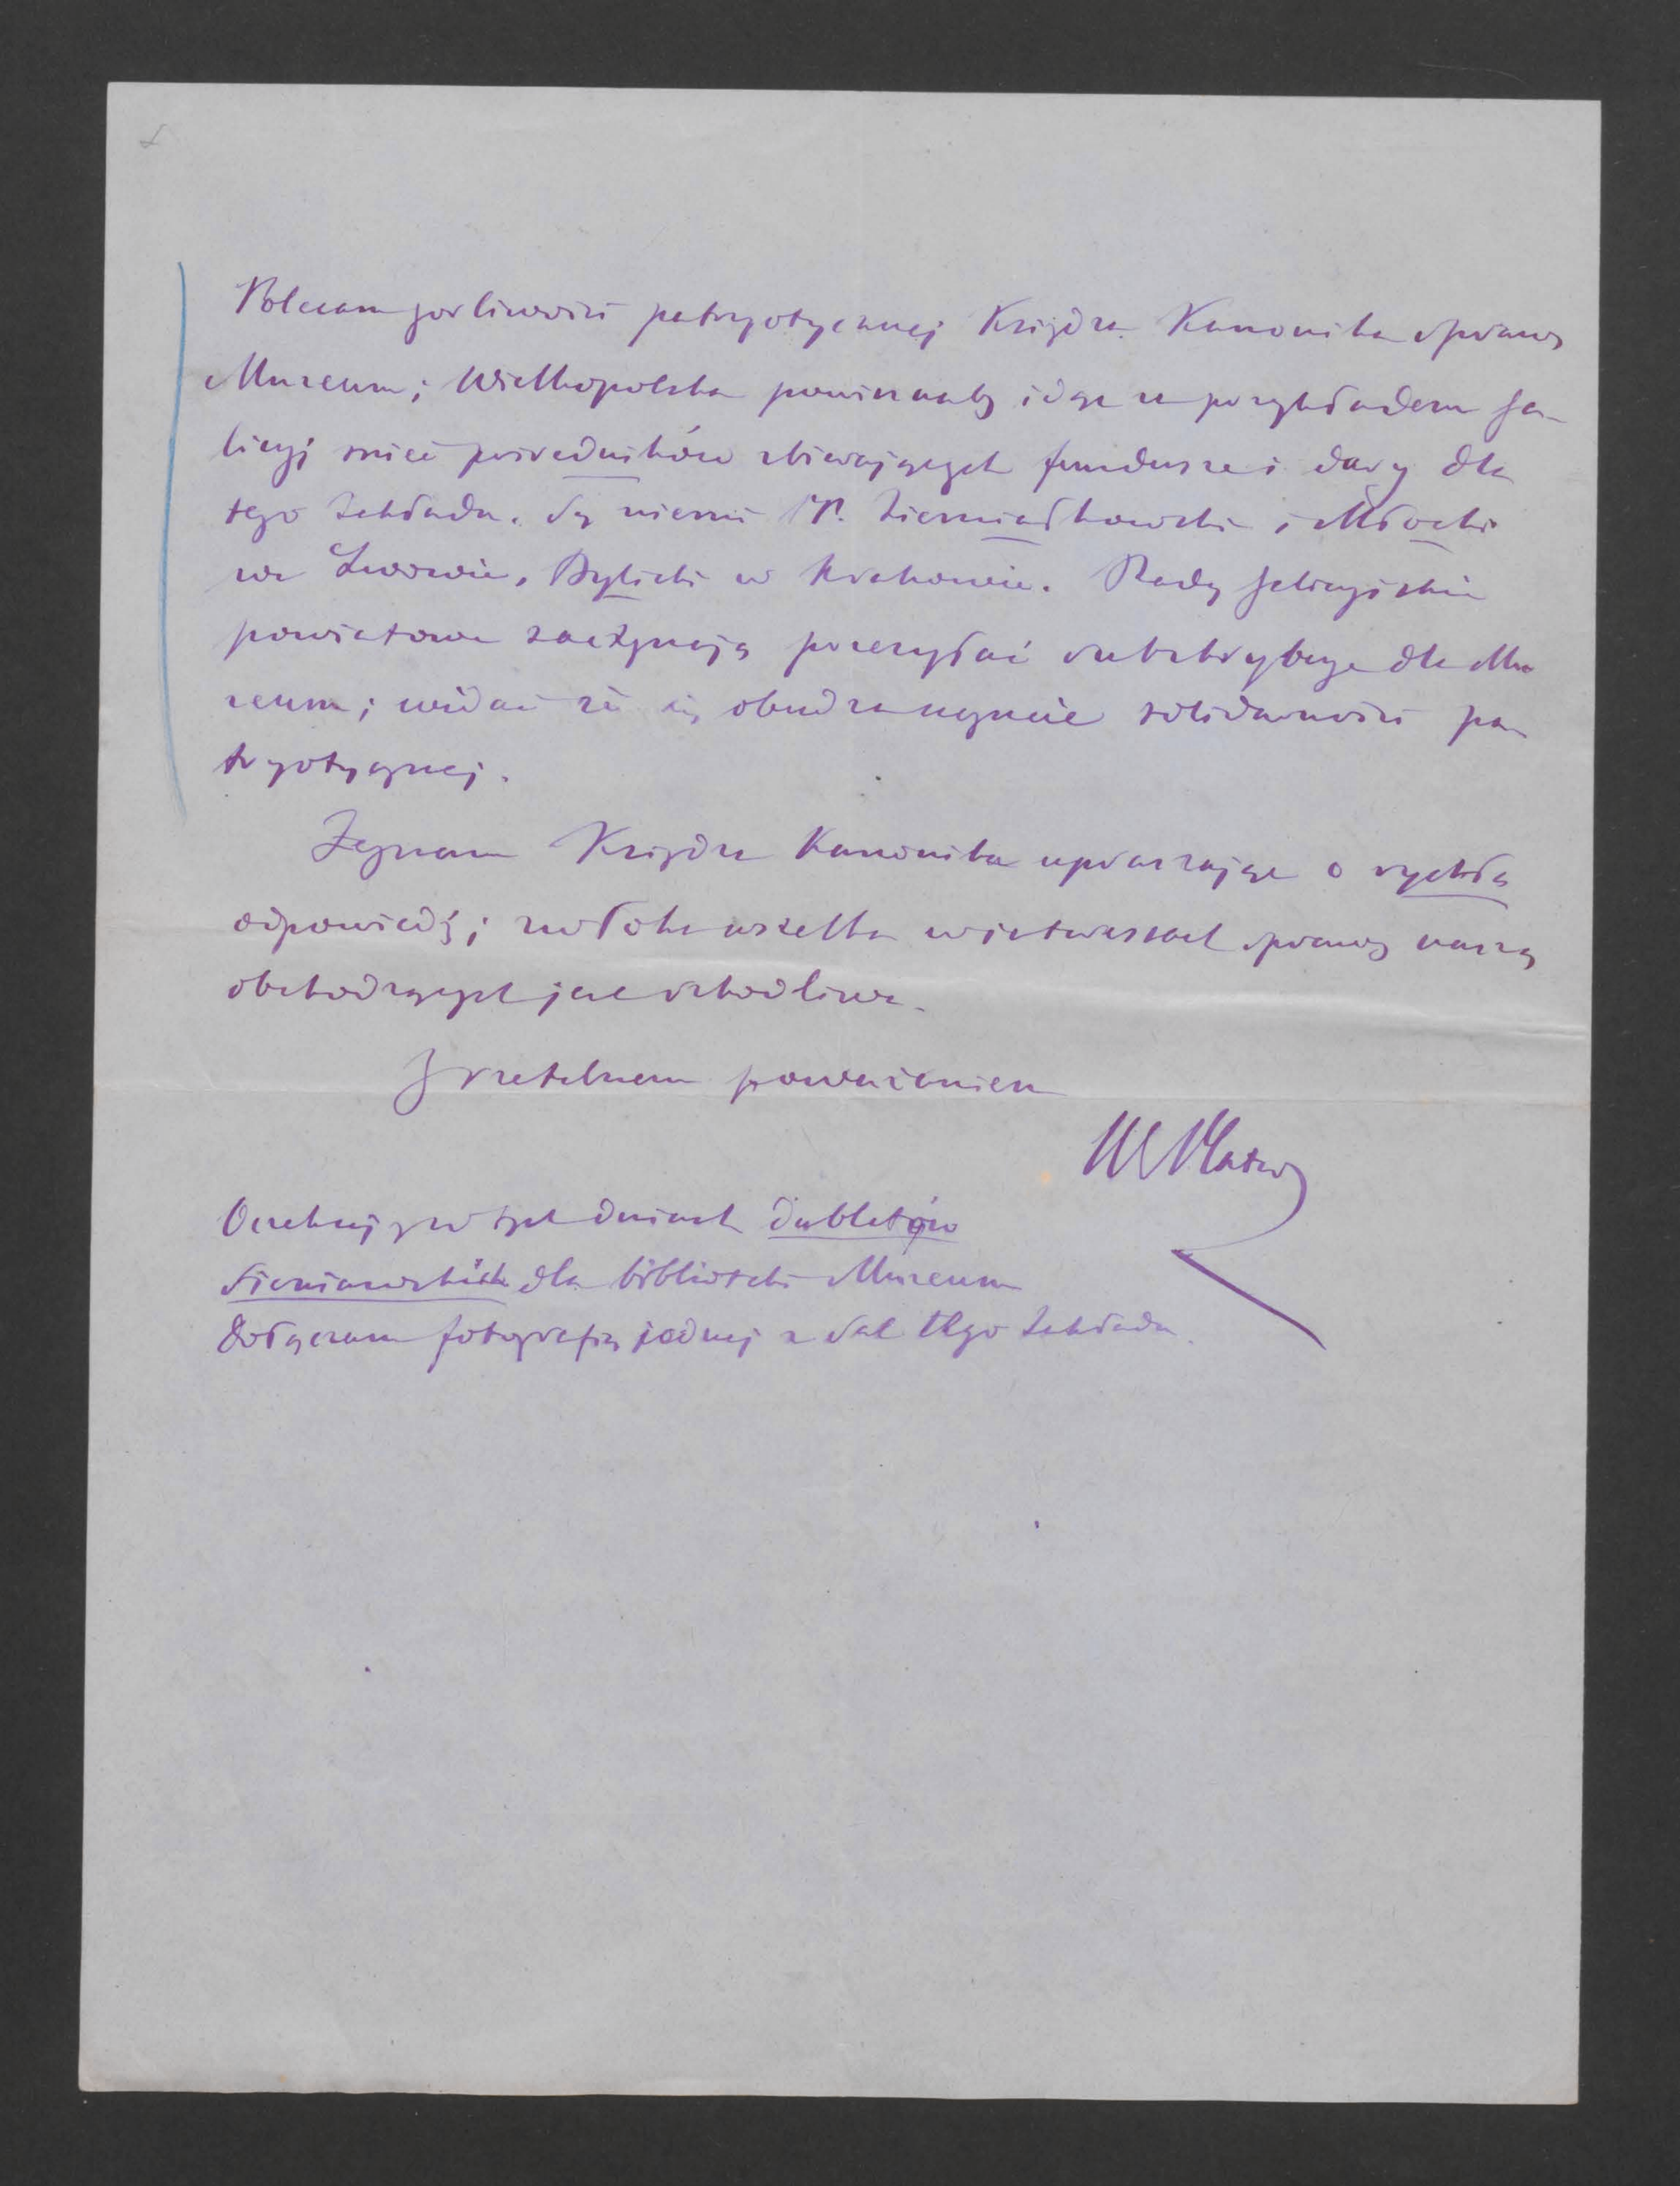 Polecam gorliwości patryotycznej Księdza Kanonika sprawę
Muzeum; Wielkopolska powinnaby idąc za przykładem Ga-
licyi mieć pośredników zbierających fundusze i dary dla
tego Zakładu. Są niemi PP. Ziemiałkowski i Młocki
we Lwowie, Bylicki w Krakowie. Rady galicyjskie
powiatowe zaczynają przesyłać subskrybcye dla Mu
zeum; widać że się obudza uczucie solidarności pa
tryotycznej.
Żegnam Księdza Kanonika upraszając o rychłą
odpowiedź; zwłoka wszelka w interessach sprawę naszą
obchodzących jest szkodliwa.
Z rzetelnem poważaniem
Oczekuję w tych dniach dubletów
Sieniawskich dla biblioteki Muzeum
Dołączam fotografię jednej z Sal tego Zakładu.